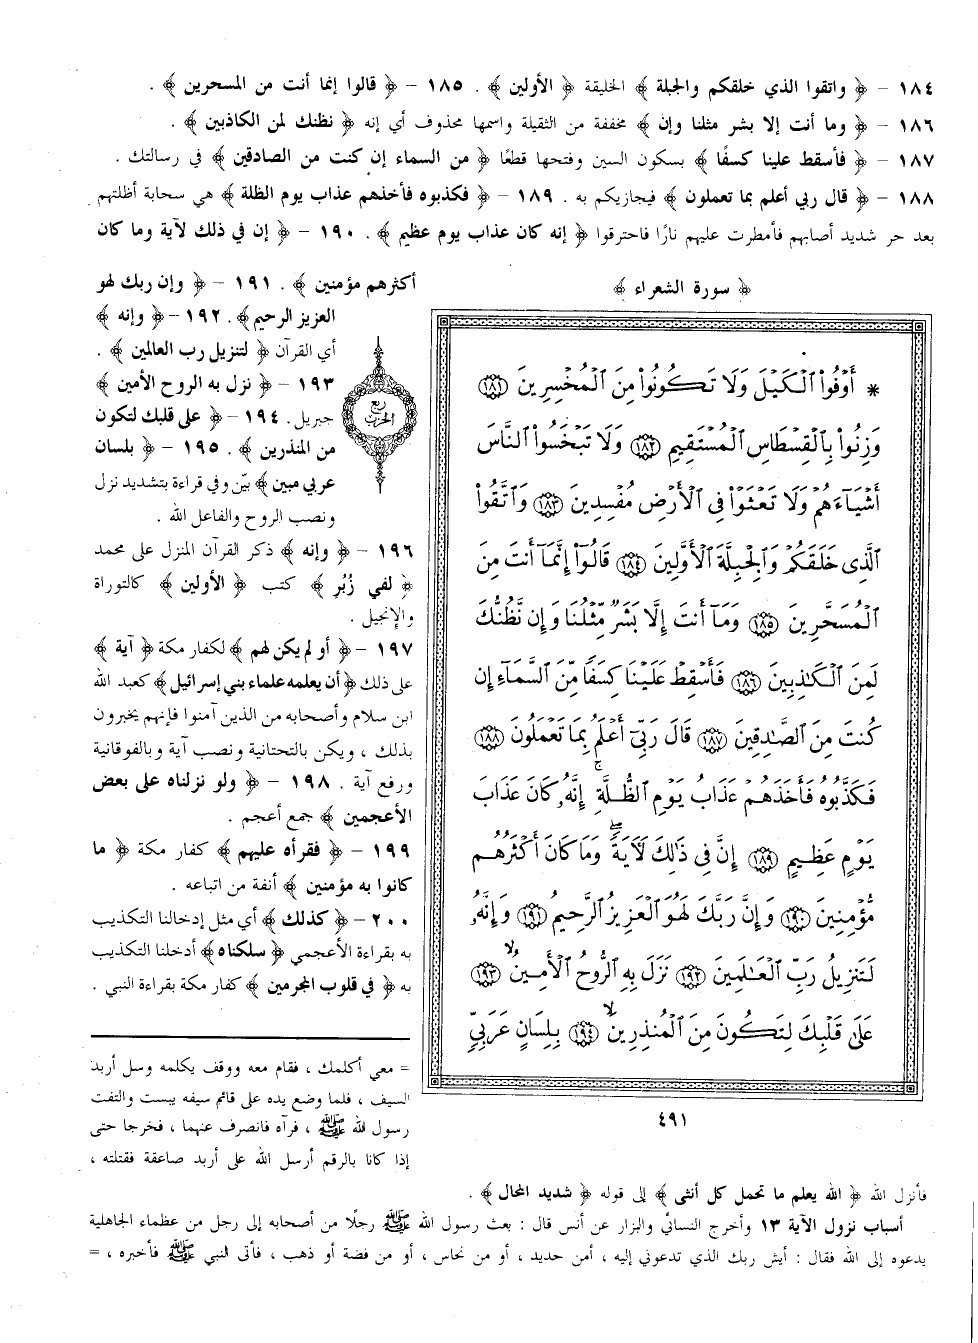 ١٨٤ – ﴿ واتقوا الذي خلقكم والجبلة ﴾ الخليقة ﴿ الأولين ﴾ . ١٨٥ – ﴿ قالوا إنما أنت من المسحرين ﴾ .
١٨٦ – ﴿ وما أنت إلا بشر مثلنا وإن ﴾ مخففة من الثقيلة واسمها محذوف أي إنه ﴿ نظنك لمن الكاذبين ﴾ .
١٨٧ – ﴿ فأسقط علينا كسفًا ﴾ بسكون السين وفتحها قطعًا ﴿ من السماء إن كنت من الصادقين ﴾ في رسالتك .
١٨٨ – ﴿ قال ربي أعلم بما تعملون ﴾ فيجازيكم به . ١٨٩ – ﴿ فكذبوه فأخذهم عذاب يوم الظلة ﴾ هي سحابة أظلتهم
بعد حر شديد أصابهم فأمطرت عليهم نارًا فاحترقوا ﴿ إنه كان عذاب يوم عظيم ﴾ . ١٩٠ – ﴿ إن في ذلك لآية وما كان
﴿ سورة الشعراء ﴾
* أَوْفُوا۟ ٱلْكَيْلَ وَلَا تَكُونُوا۟ مِنَ ٱلْمُخْسِرِينَ ١٨١
وَزِنُوا۟ بِٱلْقِسْطَاسِ ٱلْمُسْتَقِيمِ ١٨٢ وَلَا تَبْخَسُوا۟ ٱلنَّاسَ
أَشْيَآءَهُمْ وَلَا تَعْثَوْا۟ فِى ٱلْأَرْضِ مُفْسِدِينَ ١٨٣ وَٱتَّقُوا۟
ٱلَّذِى خَلَقَكُمْ وَٱلْجِبِلَّةَ ٱلْأَوَّلِينَ ١٨٤ قَالُوٓا۟ إِنَّمَآ أَنتَ مِنَ
ٱلْمُسَحَّرِينَ ١٨٥ وَمَآ أَنتَ إِلَّا بَشَرٌ مِّثْلُنَا وَإِن نَّظُنُّكَ
لَمِنَ ٱلْكَٰذِبِينَ ١٨٦ فَأَسْقِطْ عَلَيْنَا كِسَفًا مِّنَ ٱلسَّمَآءِ إِن
كُنتَ مِنَ ٱلصَّٰدِقِينَ ١٨٧ قَالَ رَبِّىٓ أَعْلَمُ بِمَا تَعْمَلُونَ ١٨٨
فَكَذَّبُوهُ فَأَخَذَهُمْ عَذَابُ يَوْمِ ٱلظُّلَّةِ ۚ إِنَّهُۥ كَانَ عَذَابَ
يَوْمٍ عَظِيمٍ ١٨٩ إِنَّ فِى ذَٰلِكَ لَءَايَةً ۖ وَمَا كَانَ أَكْثَرُهُم
مُّؤْمِنِينَ ١٩٠ وَإِنَّ رَبَّكَ لَهُوَ ٱلْعَزِيزُ ٱلرَّحِيمُ ١٩١ وَإِنَّهُۥ
لَتَنزِيلُ رَبِّ ٱلْعَٰلَمِينَ ١٩٢ نَزَلَ بِهِ ٱلرُّوحُ ٱلْأَمِينُ ١٩٣
عَلَىٰ قَلْبِكَ لِتَكُونَ مِنَ ٱلْمُنذِرِينَ ١٩٤ بِلِسَانٍ عَرَبِىٍّ
٤٩١
ربع
الحزب
أكثرهم مؤمنين ﴾ . ١٩١ – ﴿ وإن ربك لهو
العزيز الرحيم ﴾ . ١٩٢ – ﴿ وإنه ﴾
أي القرآن ﴿ لتنزيل رب العالمين ﴾ .
١٩٣ – ﴿ نزل به الروح الأمين ﴾
جبريل. ١٩٤ – ﴿ على قلبك لتكون
من المنذرين ﴾ . ١٩٥ – ﴿ بلسان
عربي مبين ﴾ بيّن وفي قراءة بتشديد نزل
ونصب الروح والفاعل الله .
١٩٦ – ﴿ وإنه ﴾ ذكر القرآن المنزل على محمد
﴿ لفي زُبُر ﴾ كتب ﴿ الأولين ﴾ كالتوراة
والإنجيل .
١٩٧ – ﴿ أو لم يكن لهم ﴾ لكفار مكة ﴿ آية ﴾
على ذلك ﴿ أن يعلمه علماء بني إسرائيل ﴾ كعبد الله
ابن سلام وأصحابه من الذين آمنوا فإنهم يخبرون
بذلك ، ويكن بالتحتانية ونصب آية وبالفوقانية
ورفع آية . ١٩٨ – ﴿ ولو نزلناه على بعض
الأعجمين ﴾ جمع أعجم .
١٩٩ – ﴿ فقرأه عليهم ﴾ كفار مكة ﴿ ما
كانوا به مؤمنين ﴾ أنفة من اتباعه .
٢٠٠ – ﴿ كذلك ﴾ أي مثل إدخالنا التكذيب
به بقراءة الأعجمي ﴿ سلكناه ﴾ أدخلنا التكذيب
به ﴿ في قلوب المجرمين ﴾ كفار مكة بقراءة النبي .
= معي أكلمك ، فقام معه ووقف يكلمه وسل أربد
السيف ، فلما وضع يده على قائم سيفه يبست والتفت
رسول الله ﷺ ، فرآه فانصرف عنهما ، فخرجا حتى
إذا كانا بالرقم أرسل الله على أربد صاعقة فقتلته ،
فأنزل الله ﴿ الله يعلم ما تحمل كل أنثى ﴾ إلى قوله ﴿ شديد المحال ﴾ .
أسباب نزول الآية ١٣ وأخرج النسائي والبزار عن أنس قال : بعث رسول الله ﷺ رجلًا من أصحابه إلى رجل من عظماء الجاهلية
يدعوه إلى الله فقال : أيش ربك الذي تدعوني إليه ، أمن حديد ، أو من نحاس ، أو من فضة أو ذهب ، فأتى النبي ﷺ فأخبره ، =